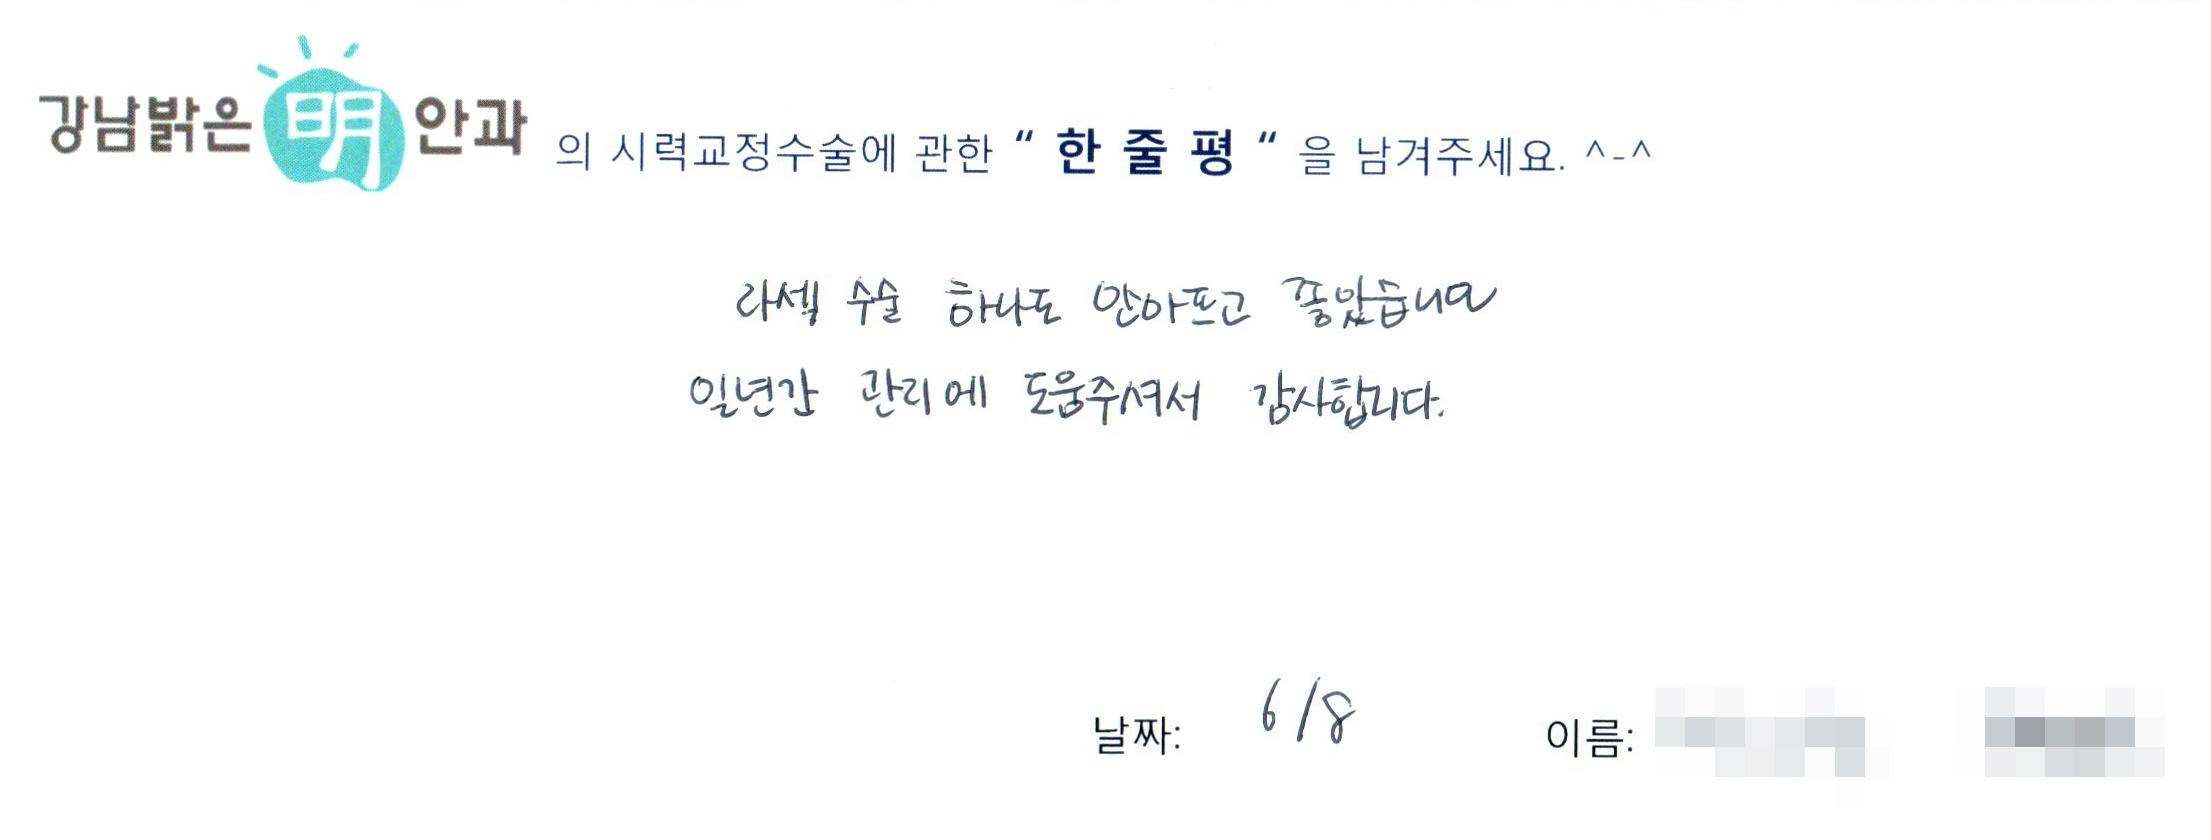 강남밝은明안과 의 시력교정수술에 관한 “ 한 줄 평 “ 을 남겨주세요. ^-^
라섹 수술 하나도 안아프고 좋았습니다
일년간 관리에 도움주셔서 감사합니다.
날짜: 6/8 이름: